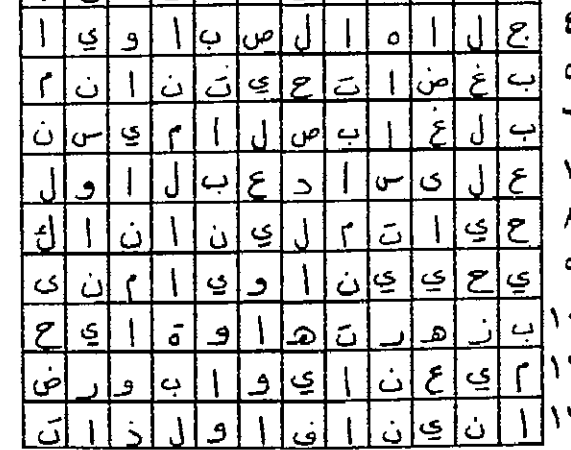 ٤ ج ل ا ه ا ل ص ب ا و ي ا
ب غ ض ا ت ح ي ت ن ا ن م
ب ل غ ا ب ص ل ا م ي س ن
ع ل ى س ا د ع ب ل ا و ل
ح ي ا ت م ل ي ن ا ن ا ك
ي ح ي ي ن ا و ي ا م ن ى
١٠ ب ز ه ر ت ه ا و ة ا ي ح
م ي ع ن ا ي و ا ب و ر ض
ا ن ي ن ا ف ا و ل ذ ا ت